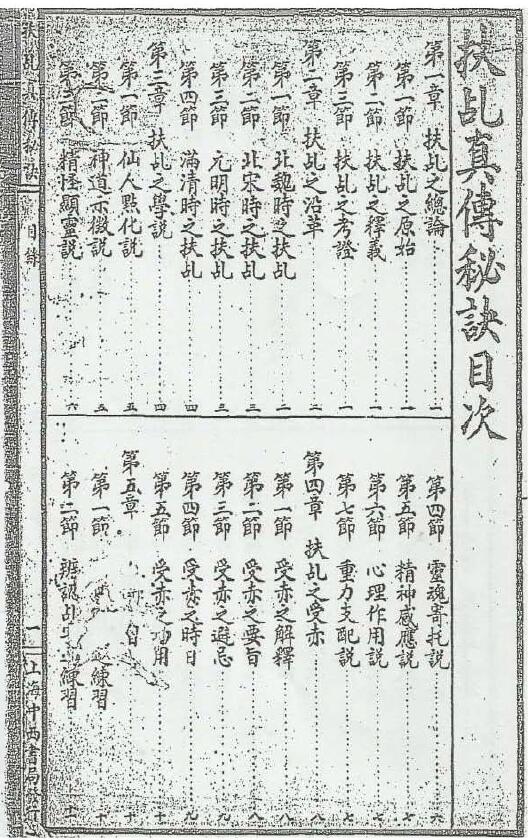 扶乩真傳秘訣目次
第一章 扶乩之總論……一
第一節 扶乩之原始……一
第二節 扶乩之釋義……一
第三節 扶乩之考證……一
第二章 扶乩之沿革……二
第一節 北魏時之扶乩……二
第二節 北宋時之扶乩……三
第三節 元明時之扶乩……三
第四節 滿清時之扶乩……四
第三章 扶乩之學說……四
第一節 仙人點化說……五
第二節 神道示微說……五
第三節 精怪顯靈說……六
第四節 靈魂寄托說……六
第五節 精神感應說……七
第六節 心理作用說……七
第七節 重力支配說……七
第四章 扶乩之受亦……八
第一節 受亦之解釋……八
第二節 受亦之要旨……八
第三節 受亦之避忌……九
第四節 受亦之時日……九
第五節 受亦之功用……十
第五章……十
第一節 練習……十
第二節 辨認乩 練習……十
扶乩真傳秘訣 目錄 一 上海中西書局發行